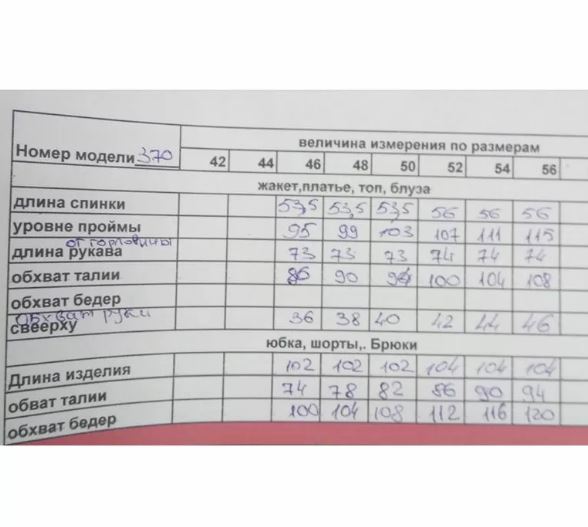 Номер модели 370
величина измерения по размерам
42 44 46 48 50 52 54 56
жакет,платье, топ, блуза
длина спинки 53,5 53,5 53,5 56 56 56
уровне проймы 95 99 103 107 111 115
от горловины
длина рукава 73 73 73 74 74 74
обхват талии 86 90 94 100 104 108
обхват бедер
обхват руки
свеерху 36 38 40 42 44 46
юбка, шорты,. Брюки
Длина изделия 102 102 102 104 104 104
обват талии 74 78 82 86 90 94
обхват бедер 100 104 108 112 116 120